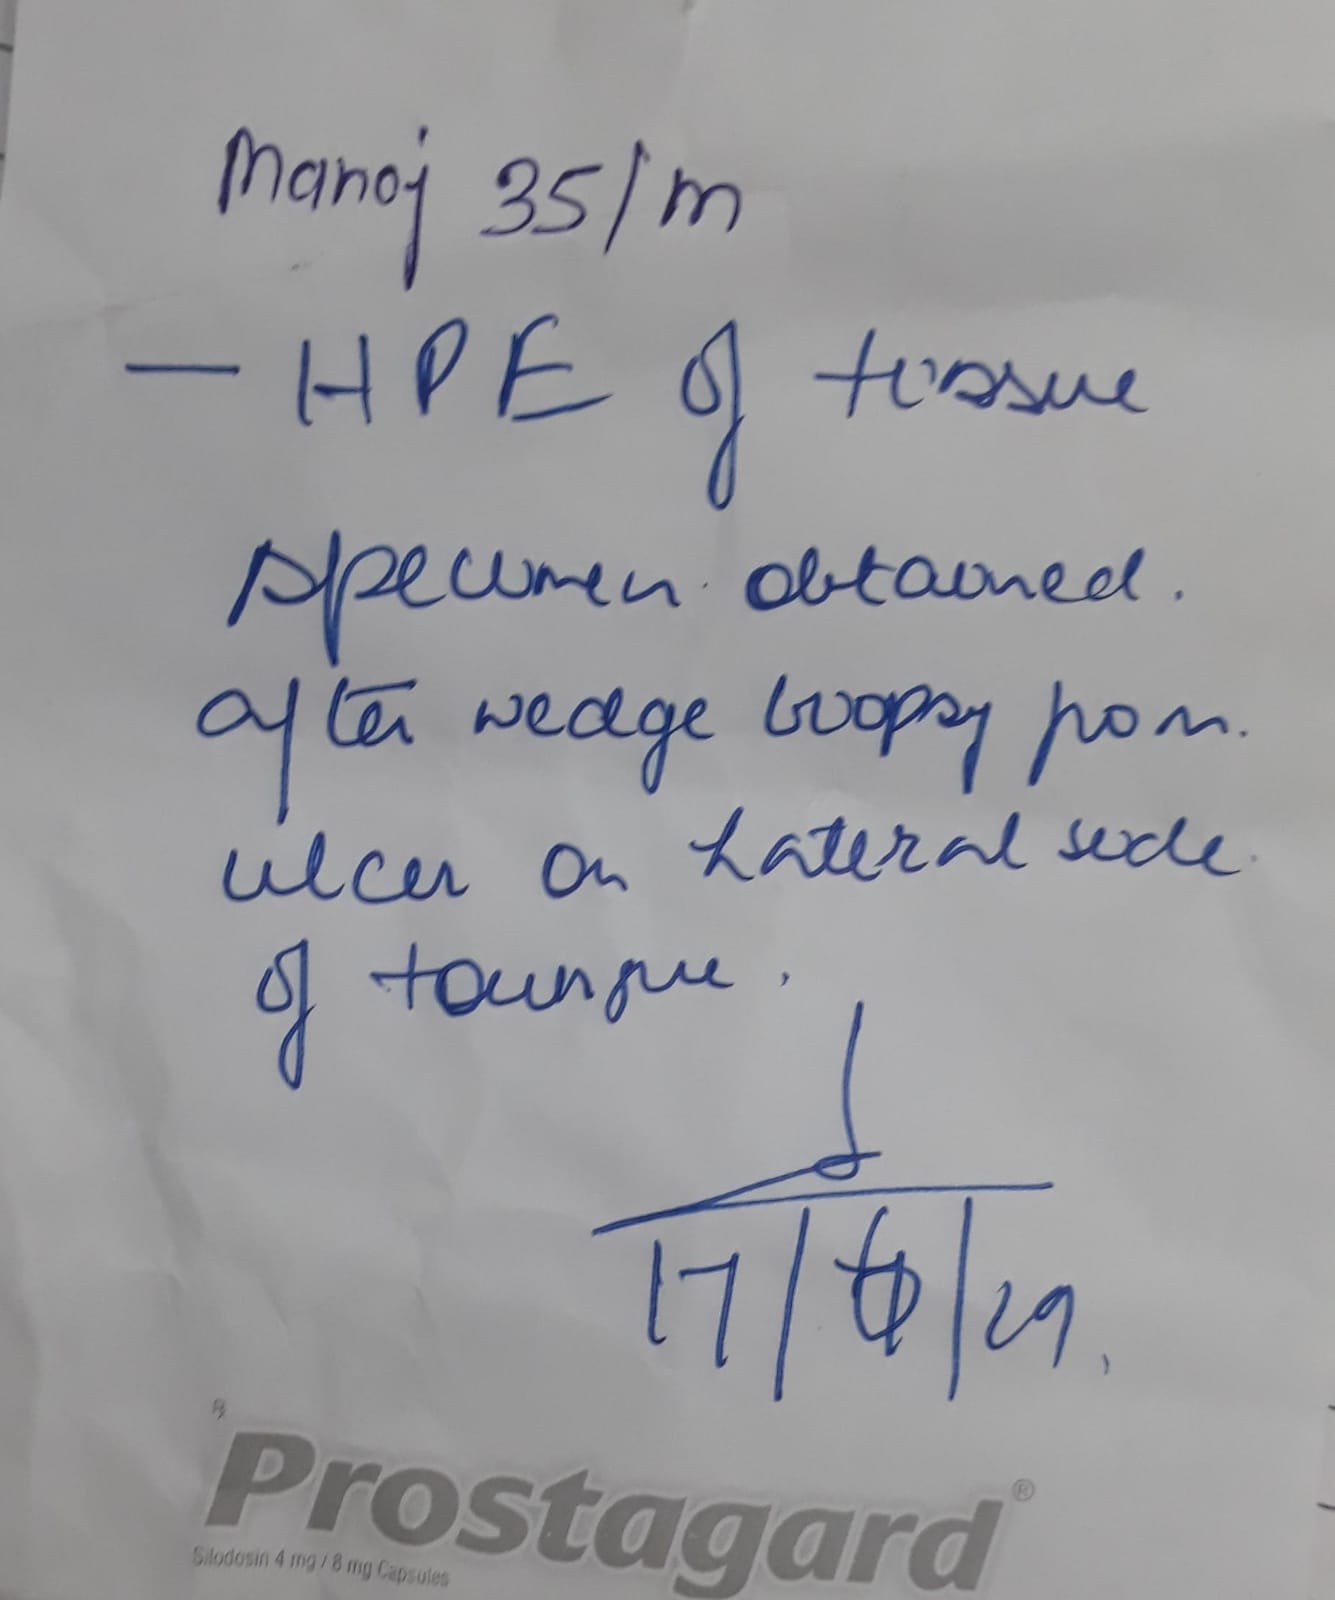 Manoj 35/m
- HPE of tissue
specimen obtained.
after wedge biopsy from.
ulcer on Lateral side.
of toungue.
17/ /29.
Rx
Prostagard®
Silodosin 4 mg / 8 mg Capsules